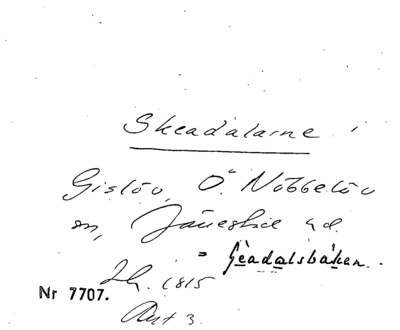 Skeadalarne
Gislöv, Ö. Nöbbelöv
sn, Järrestad hd.
= Geadalsbäken.
Ih. 1815
Nr 7707.
Akt 3.